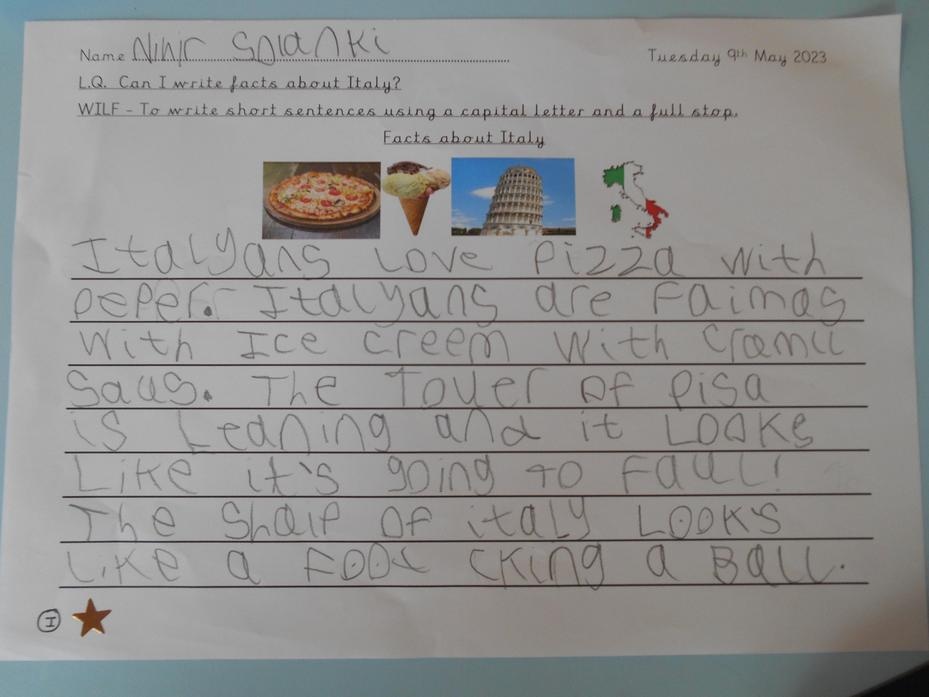 Name Nihir Solanki Tuesday 9th May 2023
L.Q. Can I write facts about Italy?
WILF - To write short sentences using a capital letter and a full stop.
Facts about Italy
Italyans Love Pizza with
peper. Italyans are Faimas
with Ice creem with Cramil
Saus. The Tower of pisa
is Leaning and it LOOKs
Like it's going to Faull!
The Shaip of italy LOOKs
Like a FOOt cking a Ball.
I